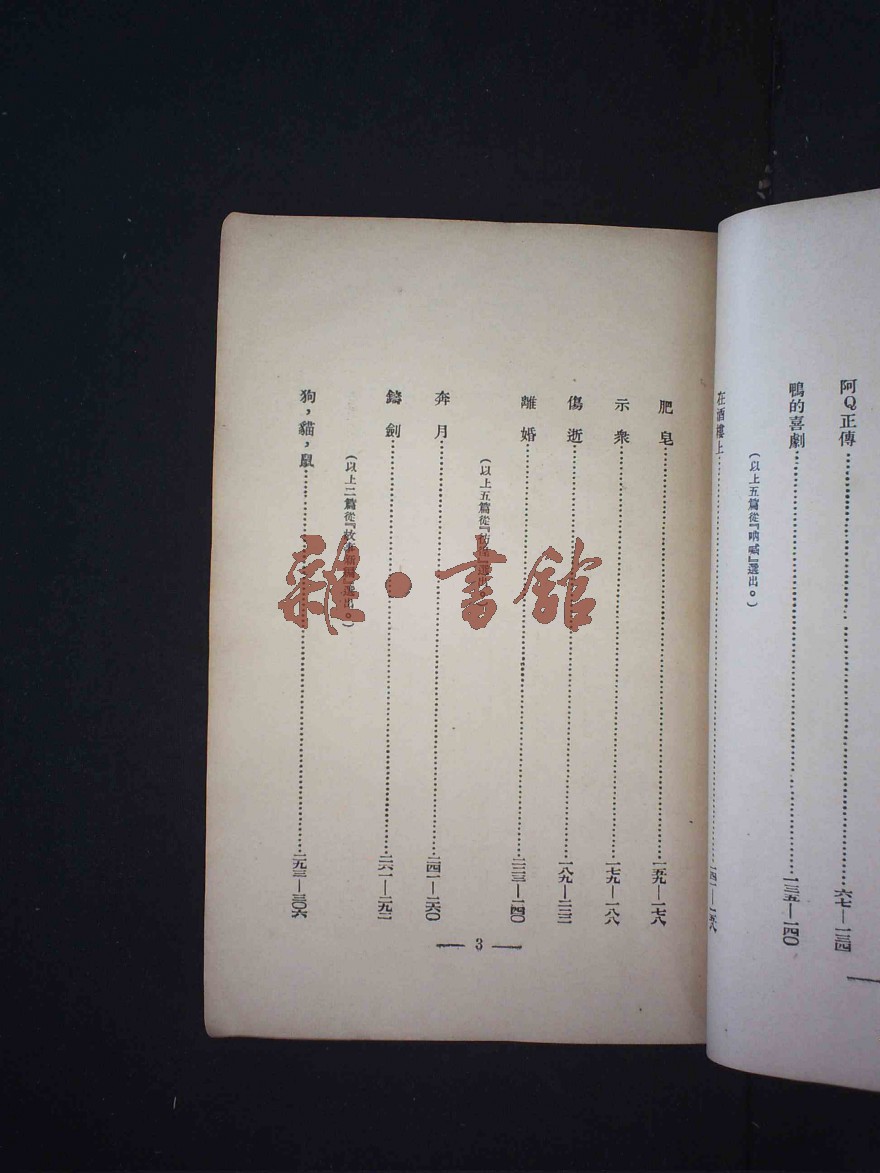 阿Q正傳……六七—一三四
鴨的喜劇……一三五—一四〇
（以上五篇從『吶喊』選出。）
在酒樓上……一四一—一五八
肥皂……一五九—一七八
示衆……一七九—一八八
傷逝……一八九—二二二
離婚……二二三—二四〇
（以上五篇從『彷徨』選出。）
奔月……二四一—二六〇
鑄劍……二六一—二九二
（以上二篇從『故事新編』選出。）
狗，貓，鼠……二九三—三〇六
— 3 —
雜·書館